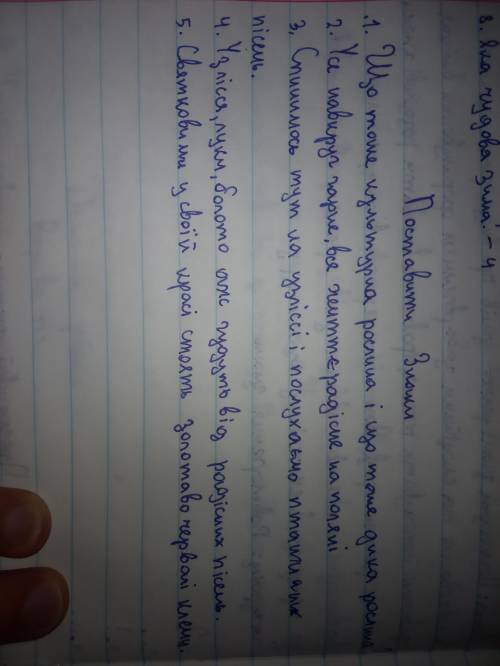 8. Яка чудова зима! - 4
Поставити Знаки
1. Що таке культурна рослина і що таке дика рослина
2. Усе навкруг гарне, все життєрадісне на поляні
3. Спинимось тут на узліссі і послухаємо пташиних
пісень.
4. Узлісся, луки, болото аж гудуть від радісних пісень.
5. Святковими у своїй красі стоять золотаво червоні клени.